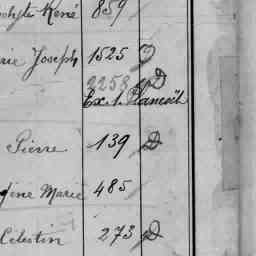 René 859
Joseph 1525 D
2258 D
Ex. s. Plancoët
Pierre 139 D
gine Marie 485
Célestin 273 D